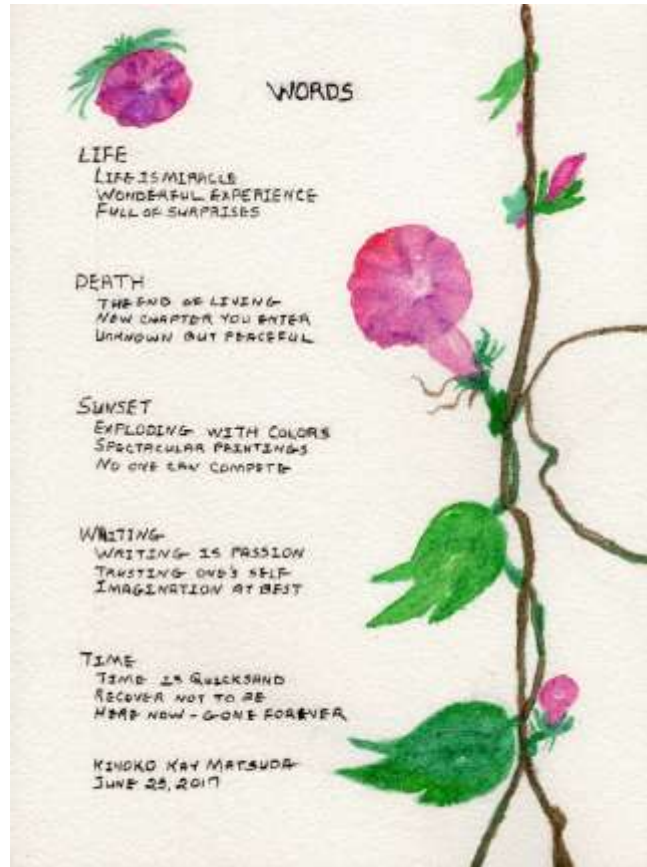 WORDS
LIFE
LIFE IS MIRACLE
WONDERFUL EXPERIENCE
FULL OF SURPRISES
DEATH
THE END OF LIVING
NEW CHAPTER YOU ENTER
UNKNOWN BUT PEACEFUL
SUNSET
EXPLODING WITH COLORS
SPECTACULAR PAINTINGS
NO ONE CAN COMPETE
WRITING
WRITING IS PASSION
TRUSTING ONE'S SELF
IMAGINATION AT BEST
TIME
TIME IS QUICKSAND
RECOVER NOT TO BE
HERE NOW - GONE FOREVER
KIYOKO KAY MATSUDA
JUNE 25, 2017